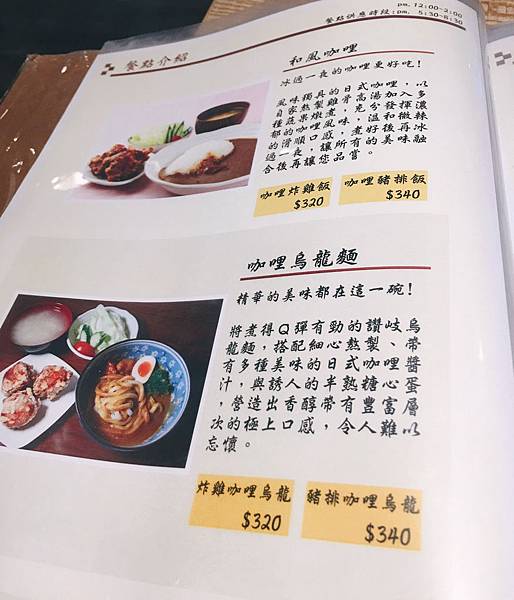 pm. 12:00~2:00
餐點供應時段:pm. 5:30~8:30
餐點介紹
和風咖哩
冰過一夜的咖哩更好吃!
風味獨具的日式咖哩,以
自家熬製雞骨高湯加入多
種蔬果燉煮,充分發揮濃
郁的咖哩風味,溫和微辣
的滑順口感,煮好後再冰
過一夜,讓所有的美味融
合後再讓您品嘗。
咖哩炸雞飯
$320
咖哩豬排飯
$340
咖哩烏龍麵
精華的美味都在這一碗!
將煮得Q彈有勁的讚岐烏
龍麵,搭配細心熬製、帶
有多種美味的日式咖哩醬
汁,與誘人的半熟糖心蛋
,營造出香醇帶有豐富層
次的極上口感,令人難以
忘懷。
炸雞咖哩烏龍
$320
豬排咖哩烏龍
$340